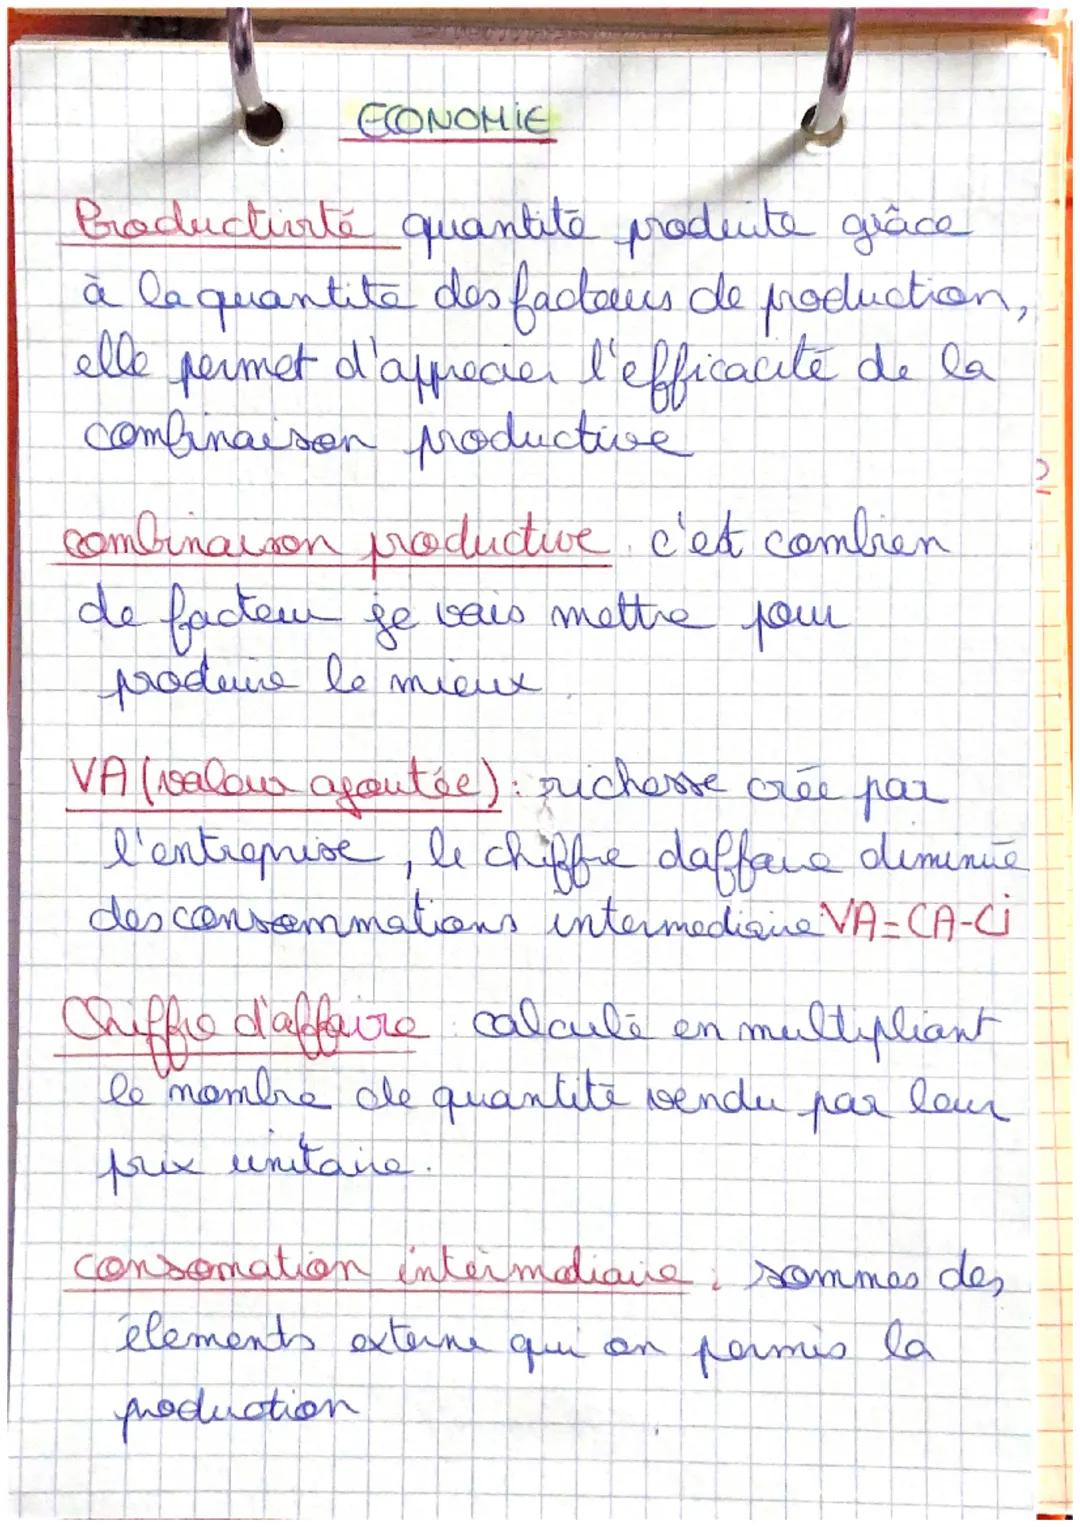 ECONOMIE
Productivité quantité produite grâce
à la quantité des facteurs de production,
elle permet d'apprecier l'efficacité de la
combinaison productive
combinaison productive. c'est combien
de facteur je vais mettre pour
produire le mieux.
VA (valeur ajoutée): richesse crée par
l'entreprise, le chiffre daffaire diminué
des consommations intermediaire VA=CA-Ci
Chiffre d'affaire. calculé en multipliant
le nombre de quantité vendu par leur
prix unitaire.
consomation intermdiaire: sommes des
élements externe qui on permis la
production